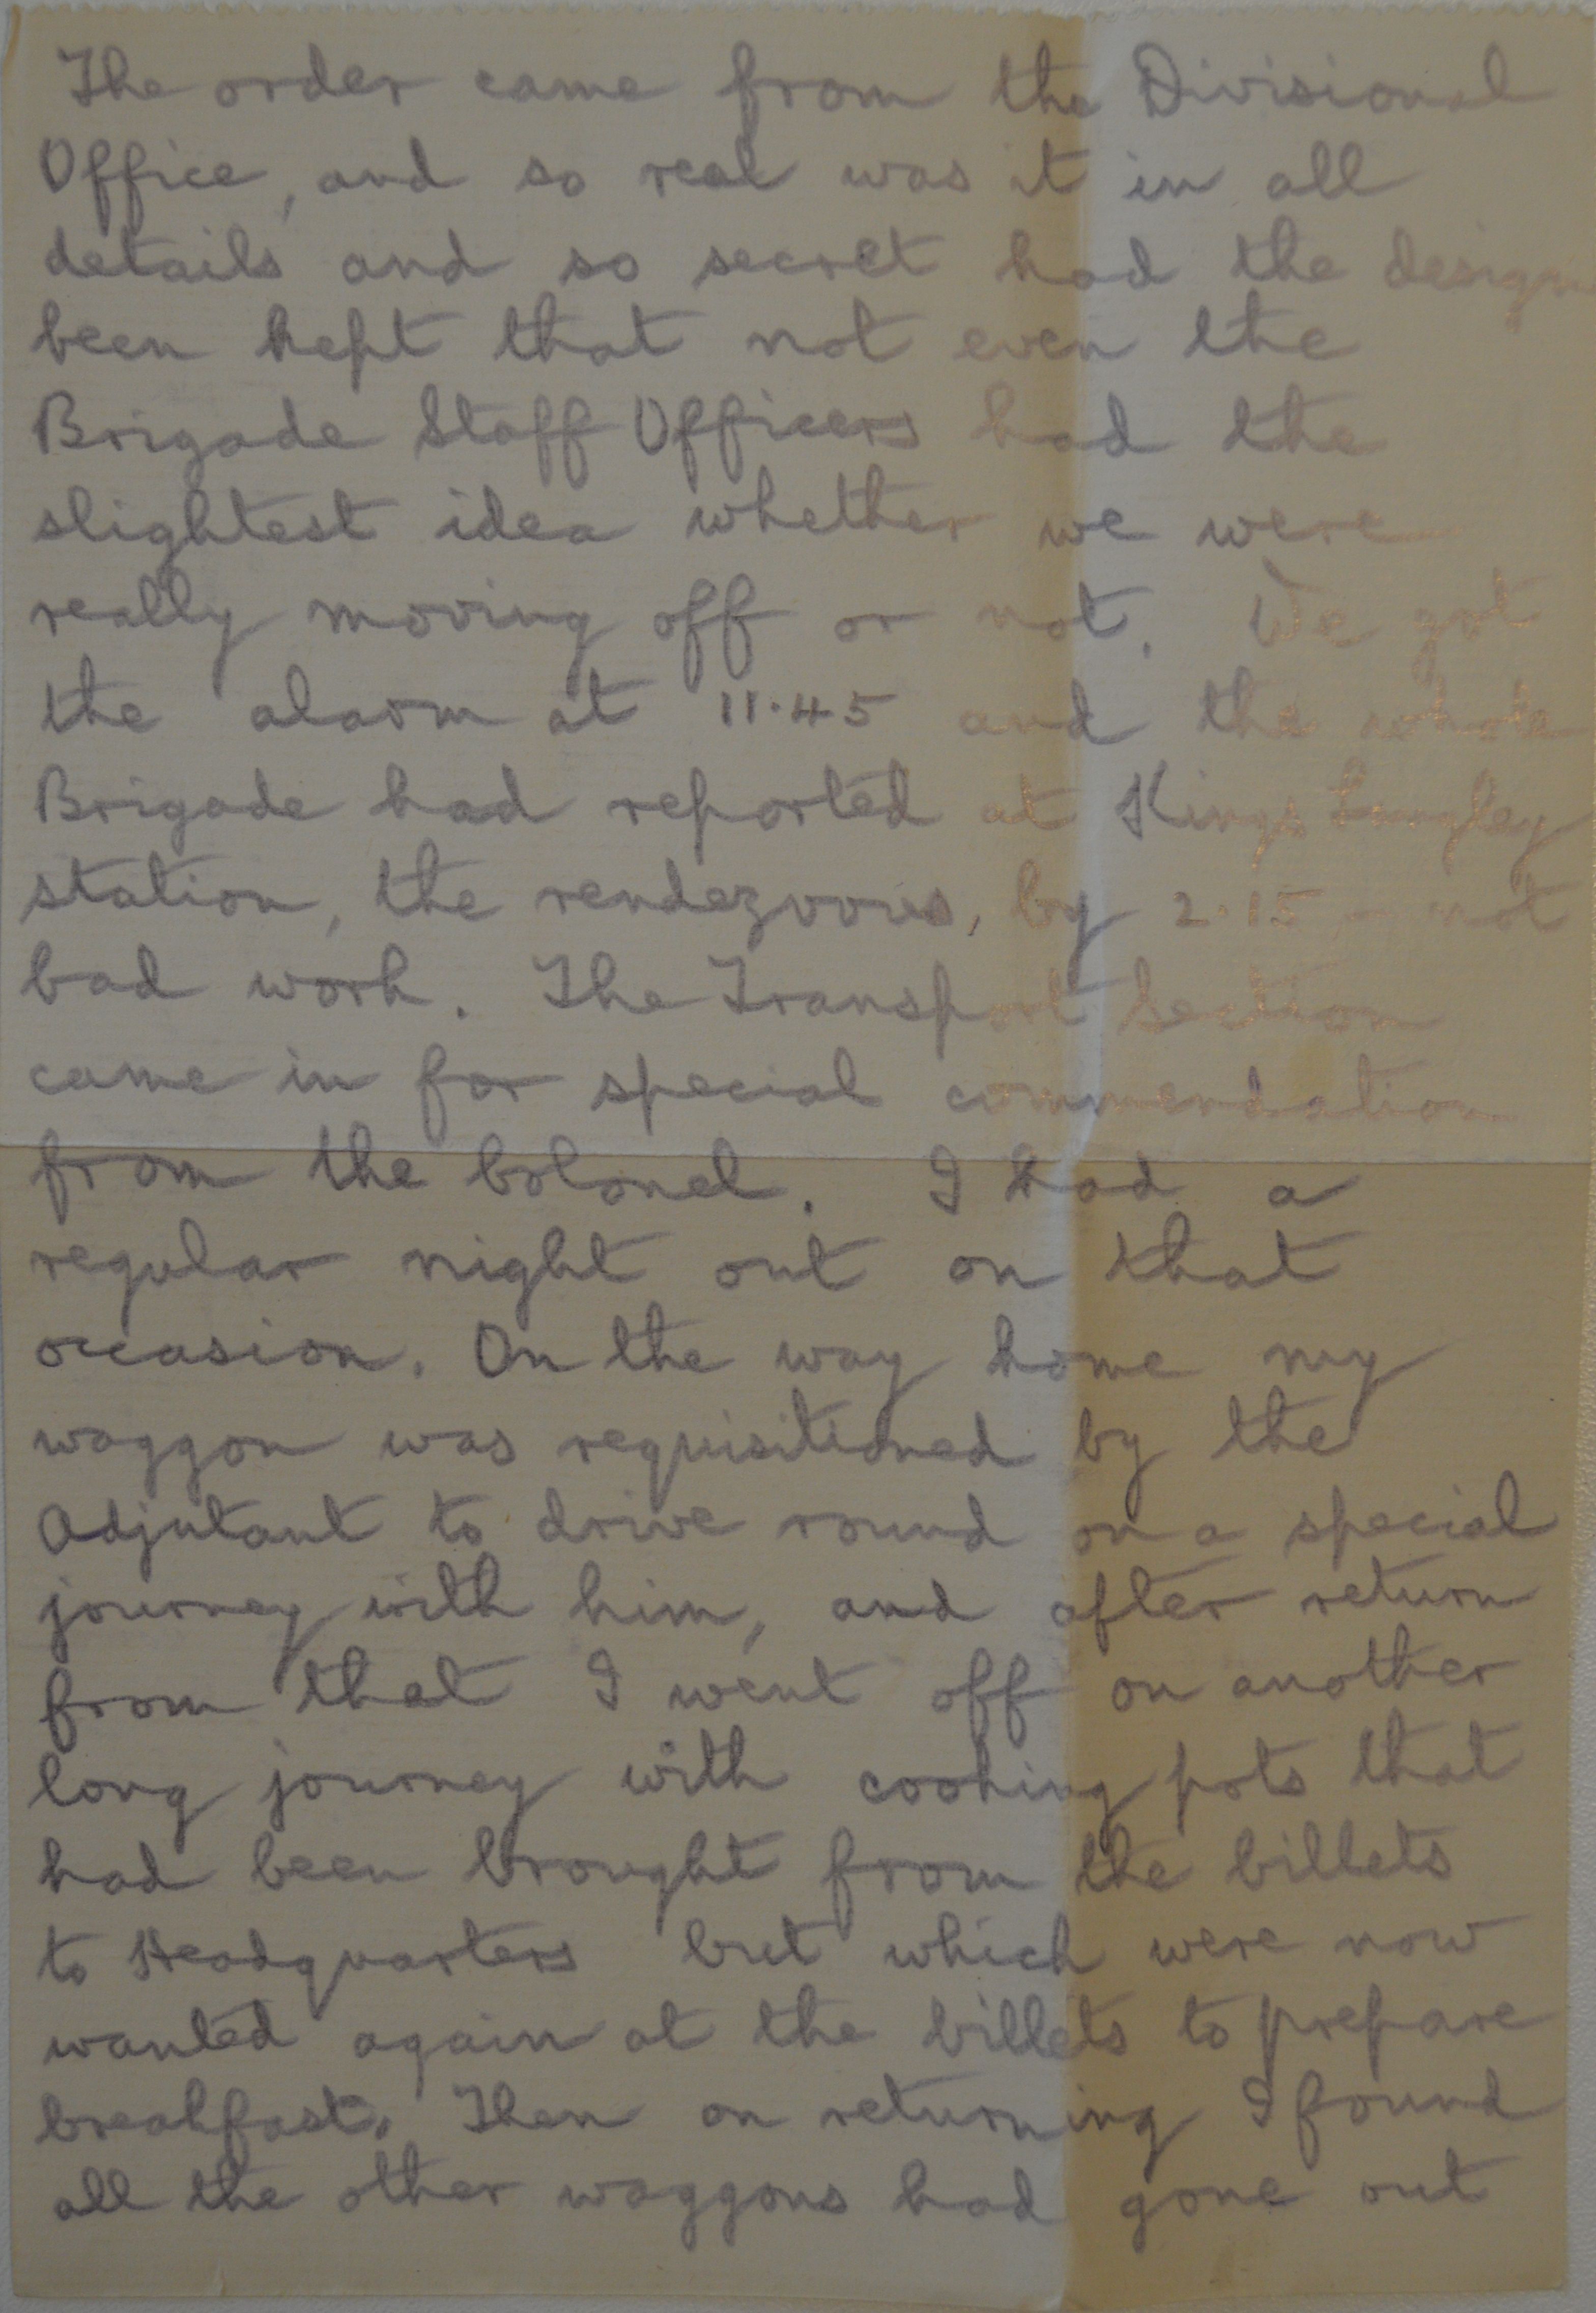 The order came from the Divisional
Office, and so real was it in all
details and so secret had the design
been kept that not even the
Brigade Staff Officers had the
slightest idea whether we were
really moving off or not. We got
the alarm at 11.45 and the whole
Brigade had reported at Kings Langley
station, the rendezvous, by 2.15 - not
bad work. The Transport Section
came in for special commendation
from the Colonel. I had a
regular night out on that
occasion. On the way home my
waggon was requisitioned by the
Adjutant to drive round on a special
journey with him, and after return
from that I went off on another
long journey with cooking pots that
had been brought from the billets
to Headquarters but which were now
wanted again at the billets to prepare
breakfast. Then on returning I found
all the other waggons had gone out